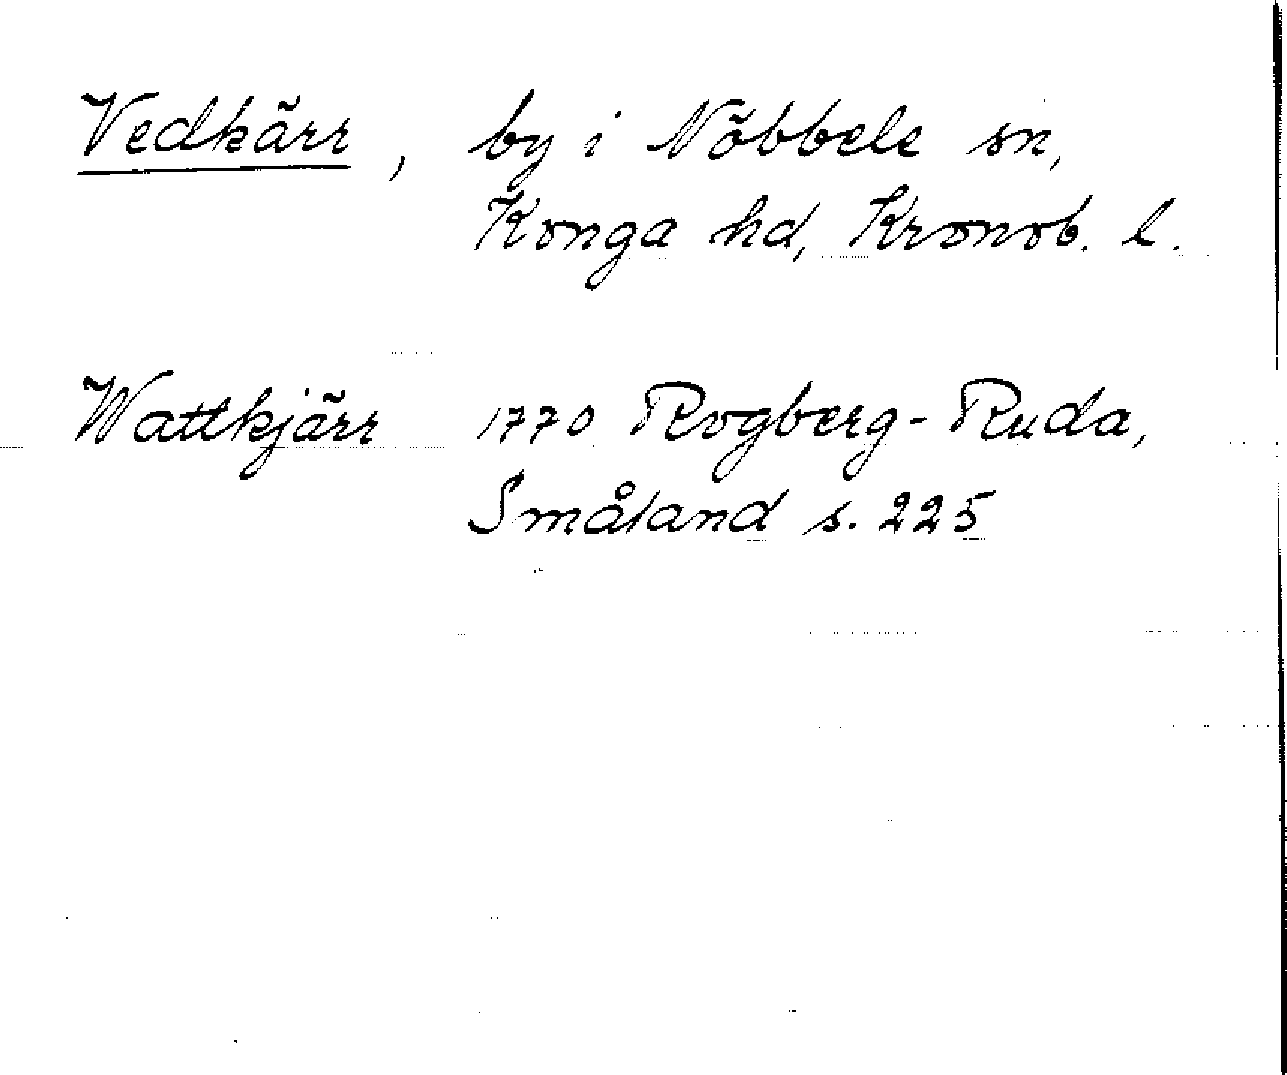 Vedkärr, by i Nöbbele sn,
Konga hd, Kronob. l.
Wattkjärr 1770 Rogberg-Ruda,
Småland s. 225